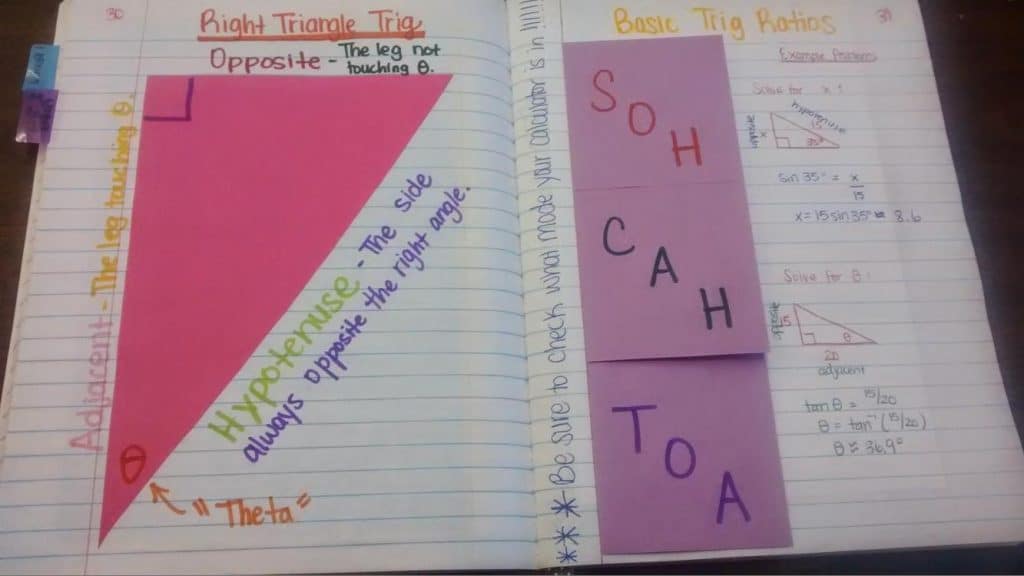 30
Right Triangle Trig
Opposite - The leg not
touching θ.
Adjacent - The leg touching θ.
Hypotenuse - The side
always opposite the right angle.
θ
"Theta"
***Be sure to check what mode your calculator is in!!!!!!
Basic Trig Ratios
31
SOH
CAH
TOA
Example Problems
Solve for x:
opposite
x
hypotenuse
15
35°
sin 35° = x/15
x = 15 sin 35° ≈ 8.6
Solve for θ:
opposite
15
θ
20
adjacent
tan θ = 15/20
θ = tan⁻¹(15/20)
θ ≈ 36.9°